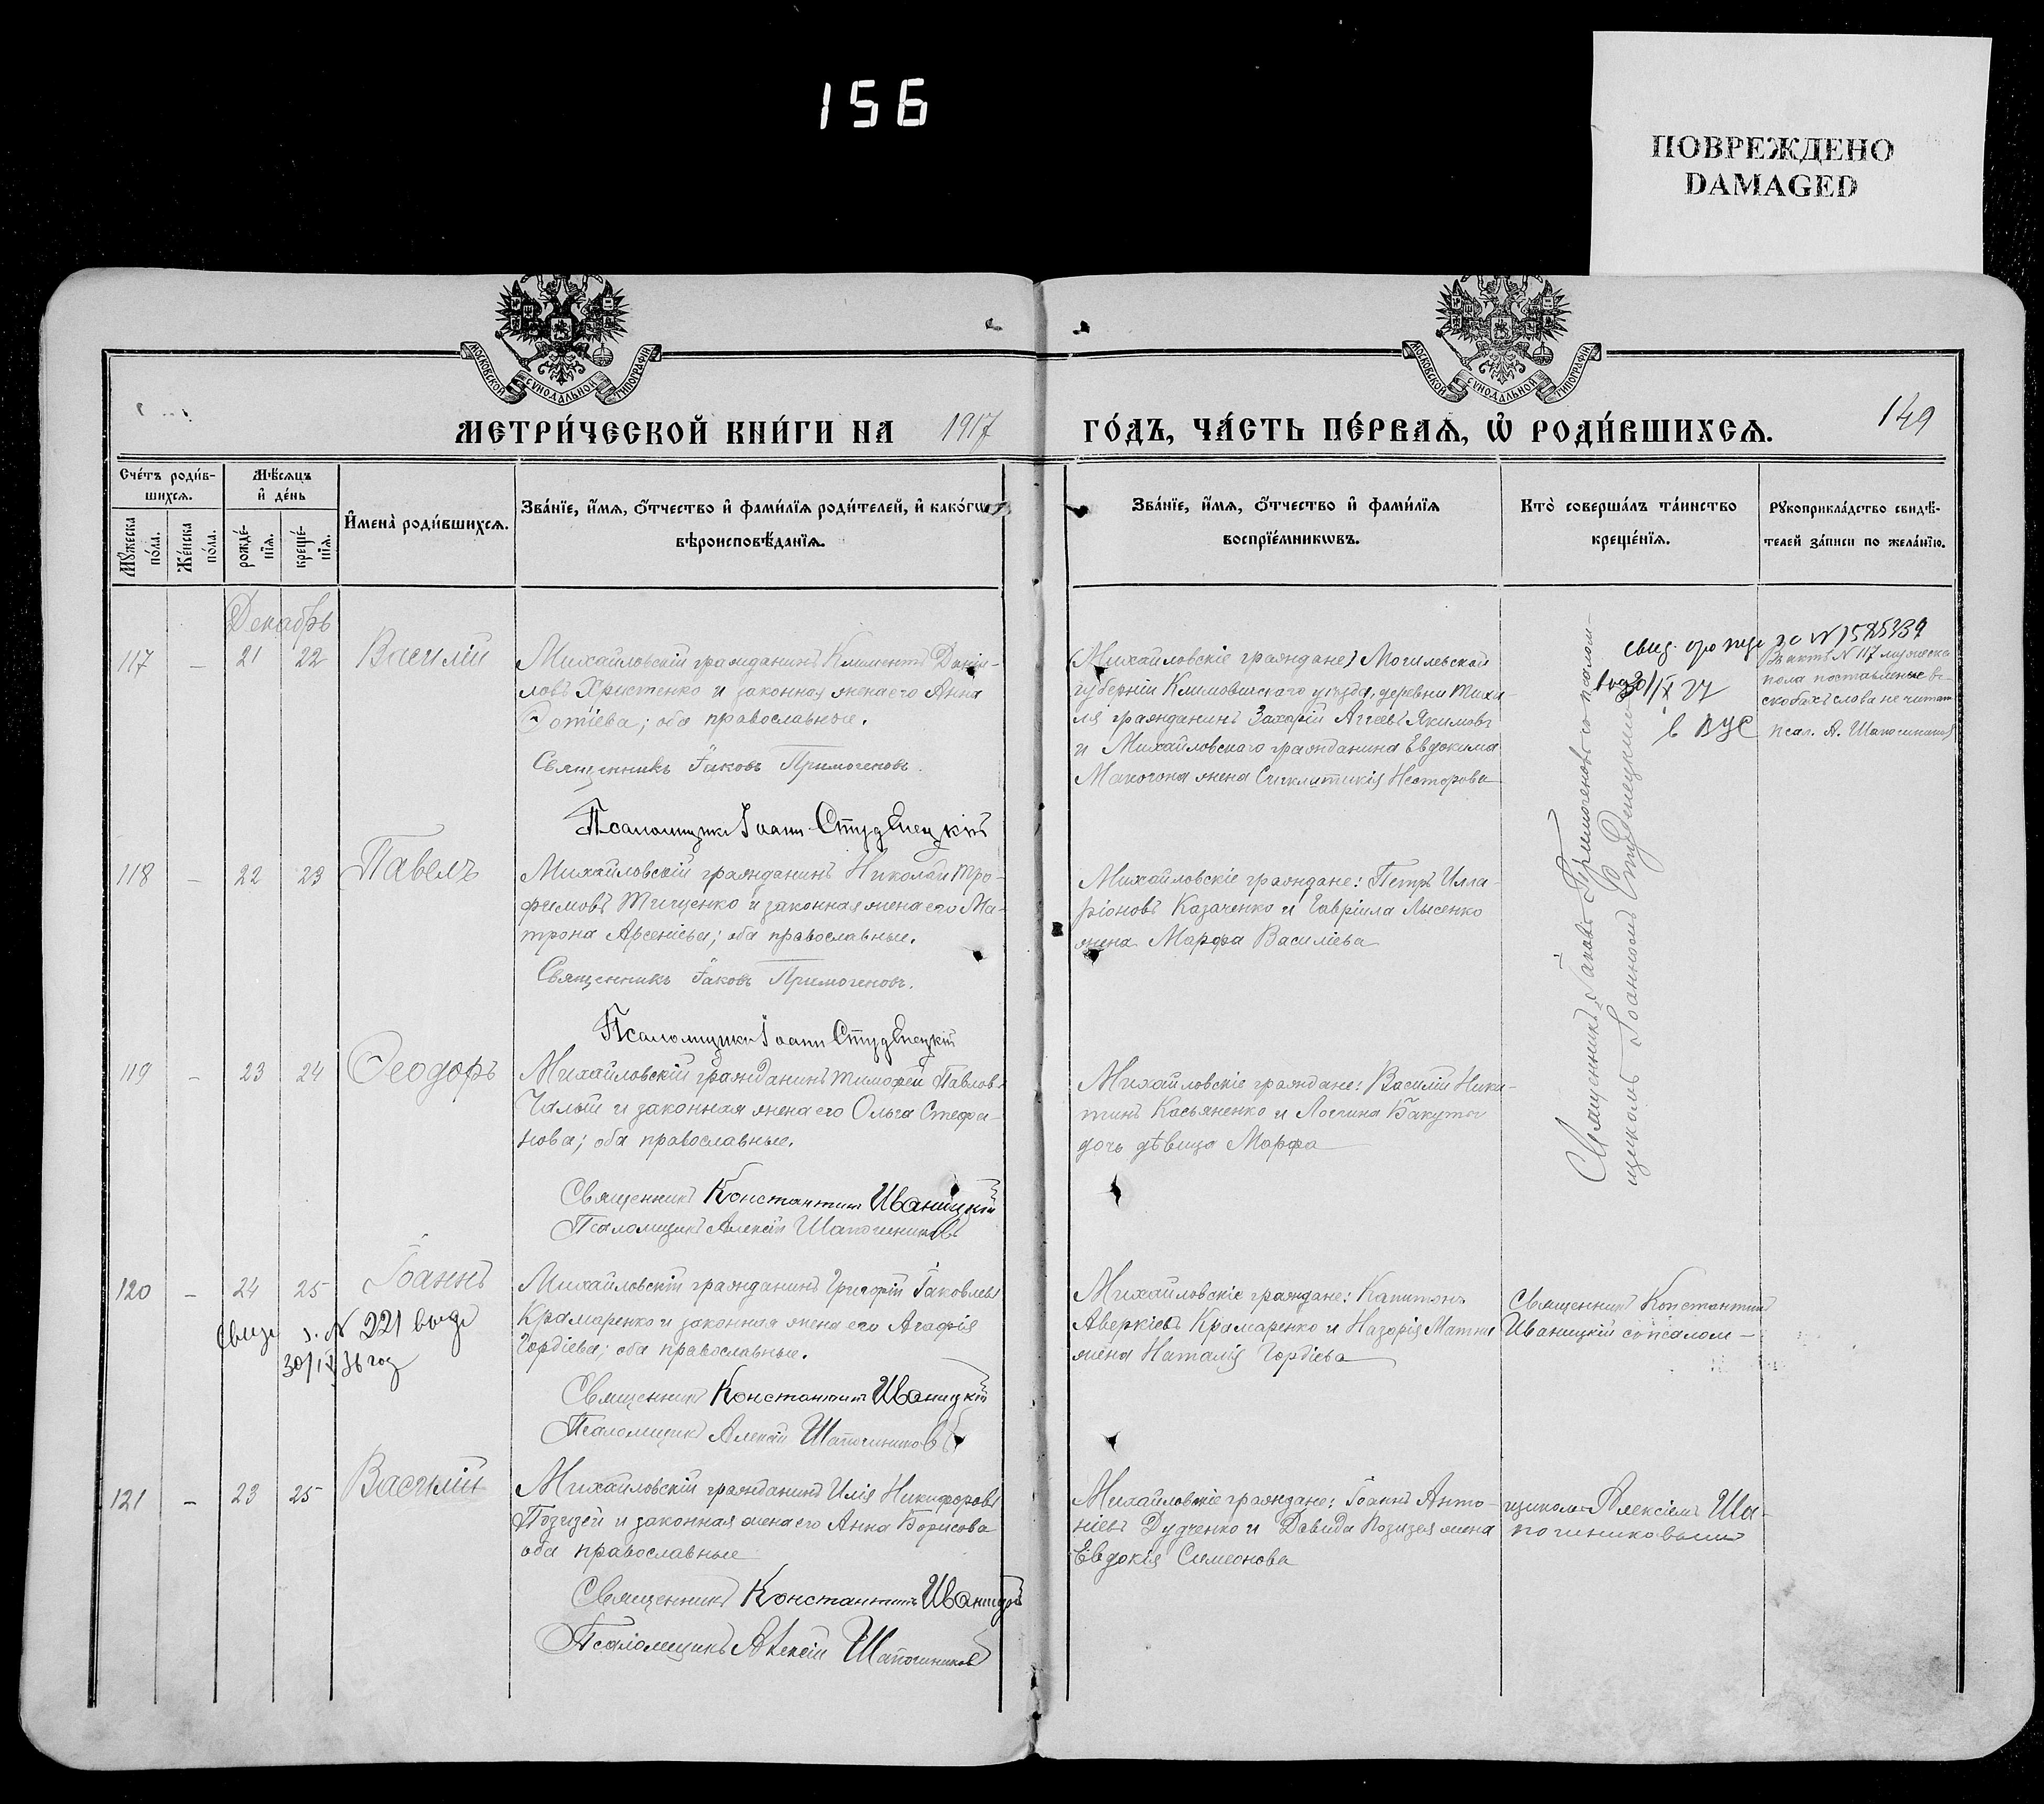 156
ПОВРЕЖДЕНО
DAMAGED
МОСКОВСКОЙ СѴНОДАЛЬНОЙ ТИПОГРАФІИ
МОСКОВСКОЙ СѴНОДАЛЬНОЙ ТИПОГРАФІИ
МЕТРИ́ЧЕСКОЙ КНИ́ГИ НА 1917 ГО́ДЪ, ЧА́СТЬ ПЕ́РВАѦ, Ѡ҆ РОДИ́ВШИХСѦ.
149
Сче́тъ роди́в-
шихсѧ.
Мѣ́сѧцъ
и҆ де́нь
Мꙋ́жеска
по́ла.
Же́нска
по́ла.
рожде́-
нїѧ.
креще́-
нїѧ.
И҆мена̀ роди́вшихсѧ.
Зва́нїе, и҆́мѧ, ѻ҆́тчество и҆ фами́лїѧ роди́телей, и҆ како́гѡ
вѣроисповѣ́данїѧ.
Зва́нїе, и҆́мѧ, ѻ҆́тчество и҆ фами́лїѧ
воспрїе́мникѡвъ.
Кто̀ соверша́лъ та́инство
креще́нїѧ.
Рꙋкоприкла́дство свидѣ́-
телей за́писи по жела́нїю.
Декабрь
117 – 21 22 Василій
Михайловскій гражданинъ Климентъ Даніи-
ловъ Христенко и законная жена его Анна
Фотіева; оба православные.
Священникъ Іаковъ Примогеновъ.
Псаломщикъ Іоаннъ Студенецкій
(Михайловскіе граждане) Могилевской
губерніи Климовичскаго уѣзда, деревни Миха-
ля гражданинъ Захарій Аггеевъ Якимовъ
и Михайловскаго гражданина Евдокима
Макогона жена Синклитикія Несторова
свид. о рожд за N 1525339
30/X 27
в ВУС
Въ актѣ N 117 мужеска
пола поставленые въ
скобахъ слова не читать
псал. А. Шапошников
Священникъ Іаковъ Примогеновъ съ псалом-
щикомъ Іоанномъ Студенецкимъ
118 – 22 23 Павелъ
Михайловскій гражданинъ Николай Тро-
фимовъ Тищенко и законная жена его Ма-
трона Арсеніева; оба православные.
Священникъ Іаковъ Примогеновъ.
Псаломщикъ Іоаннъ Студенецкій
Михайловскіе граждане: Петръ Илла-
ріоновъ Казаченко и Гавріила Лысенко
жена Марфа Василіева
119 – 23 24 Ѳеодоръ
Михайловскій гражданинъ Тимофей Павлов.
Чалый и законная жена его Ольга Стефа-
нова; оба православные.
Священникъ Константинъ Иваницкій
Псаломщикъ Алексій Шапошниковъ
Михайловскіе граждане: Василій Ники-
тинъ Касьяненко и Логгина Бакуты
дочь дѣвица Марфа
120 – 24 25 Іоаннъ
свид з. N 221 выд
30/IV 36 год
Михайловскій гражданинъ Григорій Іаковлевъ
Крамаренко и законная жена его Агафія
Гордіева; оба православные.
Священникъ Константинъ Иваницкій
Псаломщикъ Алексій Шапошниковъ
Михайловскіе граждане: Капитонъ
Аверкіевъ Крамаренко и Назарія Матни
жена Наталія Гордіева
Священникъ Константинъ
Иваницкій съ псалом-
121 – 23 25 Василій
Михайловскій гражданинъ Илія Никифоровъ
Позизей и законная жена его Анна Борисова
оба православные
Священникъ Константинъ Иваницкій
Псаломщикъ Алексій Шапошниковъ
Михайловскіе граждане: Іоаннъ Анто-
ніевъ Дудченко и Давида Позизея жена
Евдокія Симеонова
щикомъ Алексіемъ Ша-
пошниковымъ